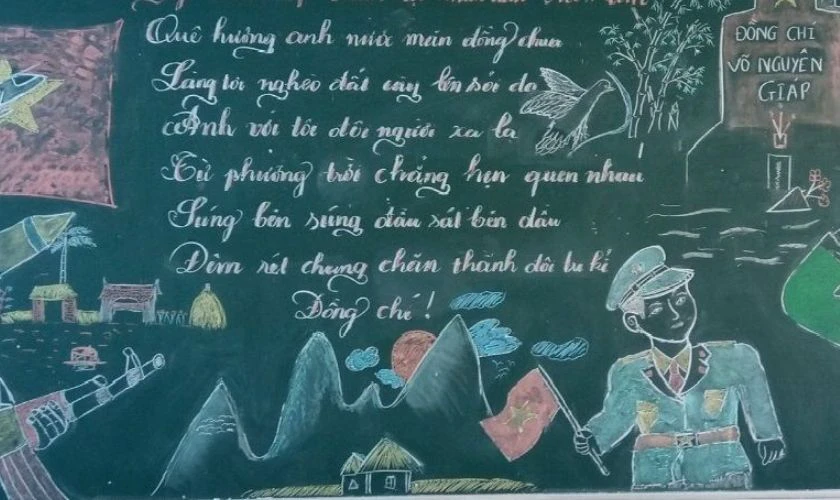 Quê hương anh nước mặn đồng chua
Làng tôi nghèo đất cày lên sỏi đá
Anh với tôi đôi người xa lạ
Từ phương trời chẳng hẹn quen nhau
Súng bên súng đầu sát bên đầu
Đêm rét chung chăn thành đôi tri kỉ
Đồng chí!
ĐỒNG CHÍ
VÕ NGUYÊN
GIÁP